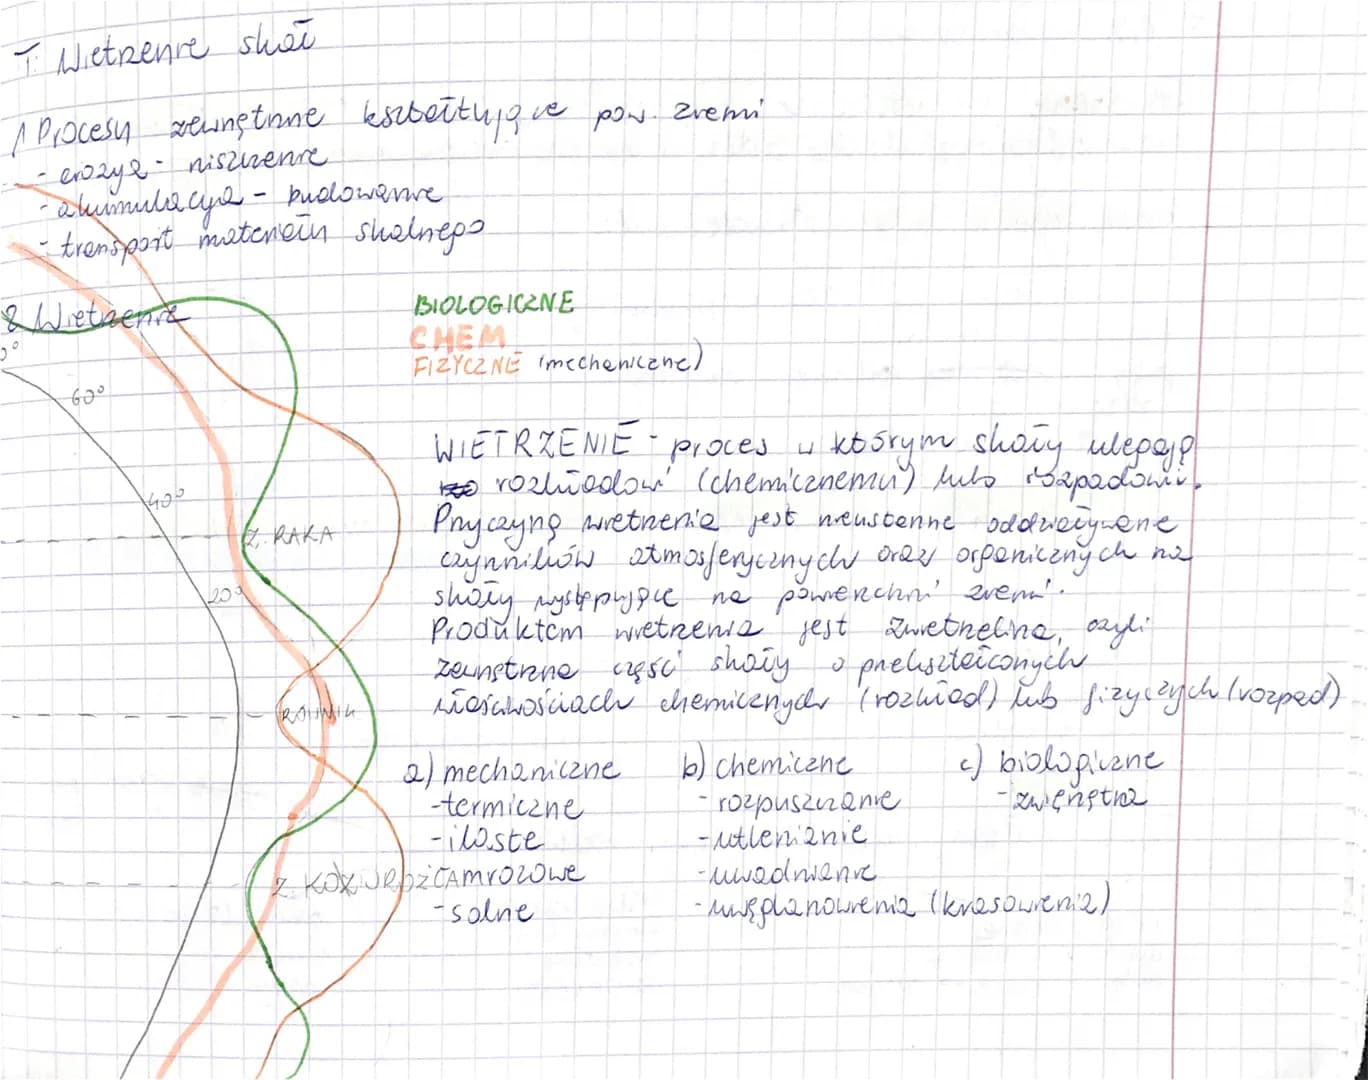 T: Wietrzenie skał
1 Procesy zewnętrzne kształtujące pow. ziemi
- erozja - niszczenie
- akumulacja - budowanie
- transport materiału skalnego
2 Wietrzenie
BIOLOGICZNE
CHEM
FIZYCZNE (mechaniczne)
0°
60°
40°
Z. RAKA
20°
RÓWNIK
Z. KOZIOROŻCA
WIETRZENIE - proces w którym skały ulegają
rozkładowi (chemicznemu) lub rozpadowi.
Przyczyną wietrzenia jest nieustanne oddziaływanie
czynników atmosferycznych oraz organicznych na
skały występujące na powierzchni ziemi.
Produktem wietrzenia jest zwietrzelina, czyli
zewnętrzna część skały o przekształconych
właściwościach chemicznych (rozkład) lub fizycznych (rozpad)
a) mechaniczne
- termiczne
- ilaste
- mrozowe
- solne
b) chemiczne
- rozpuszczanie
- utlenianie
- uwadnianie
- uwęglanowienia (krasowienia)
c) biologiczne
- zwięrzętra